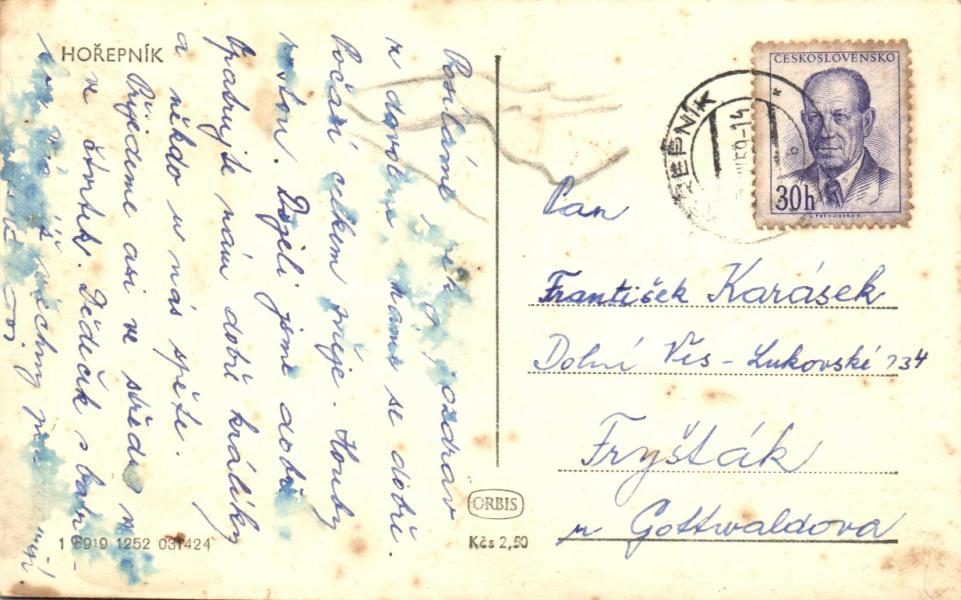 HOŘEPNÍK
Posíláme pozdrav
z dovolené máme se dobře.
Počasí celkem přeje. Houby
rostou. Dojeli jsme dobře
Opatrujte nám dobře králíky
a někdo u nás spěte.
Přijedeme asi ve středu n.
ve čtvrtek. Dědeček s babi-
všechny
1 6919 1252 031424
ORBIS
Kčs 2,50
ČESKOSLOVENSKO
30h
Pan
František Karásek
Dolní Ves - Lukovské 734
Fryšták
u Gottwaldova